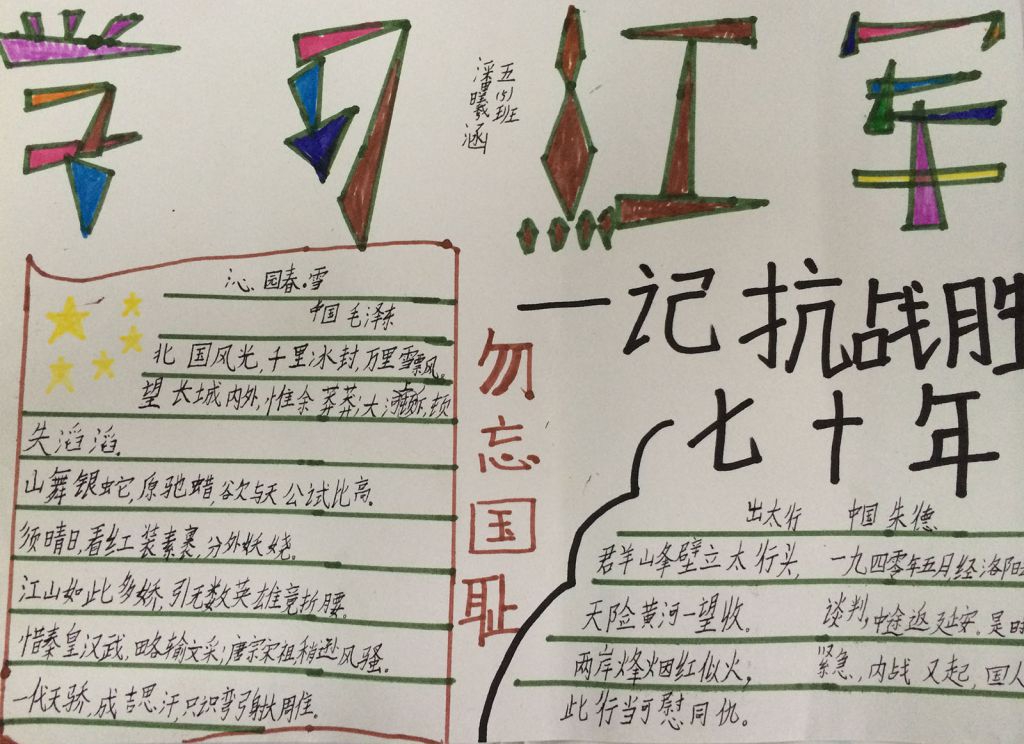 学习红军
五(5)班
潘曦涵
沁园春·雪
中国 毛泽东
北国风光,千里冰封,万里雪飘。
望长城内外,惟余莽莽;大河 顿
失滔滔。
山舞银蛇,原驰蜡 欲与天公试比高。
须晴日,看红装素裹,分外妖娆。
江山如此多娇,引无数英雄竟折腰。
惜秦皇汉武,略输文采;唐宗宋祖稍逊风骚。
一代天骄,成吉思汗,只识弯弓射大周隹。
勿忘国耻
一记抗战胜
七十年
出太行 中国 朱德
君羊山峰壁立太行头,
天险黄河一望收。
两岸烽烟红似火,
此行当可慰同仇。
一九四零年五月经洛阳
谈判,中途返延安。是时
紧急,内战又起,国人